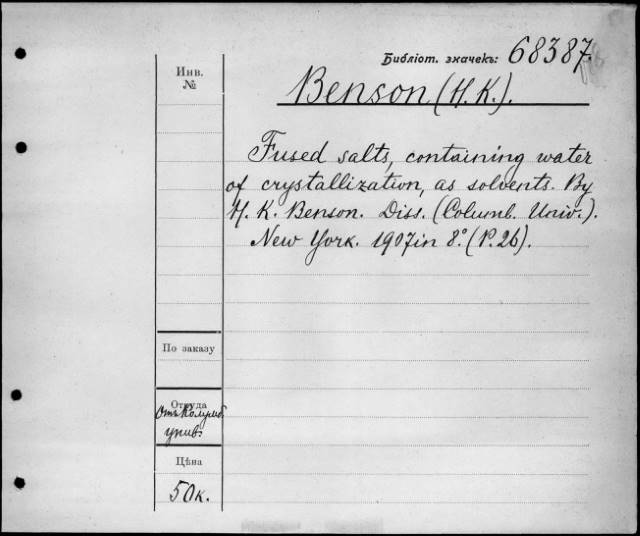 Библіот. значекъ: 68387.
Инв.
№
Benson (H. K.).
Fused salts, containing water
of crystallization, as solvents. By
H. K. Benson. Diss. (Columb. Univ.).
New York. 1907 in 8° (P. 26).
По заказу
Откуда
Отъ Колумб.
унив.
Цѣна
50 к.